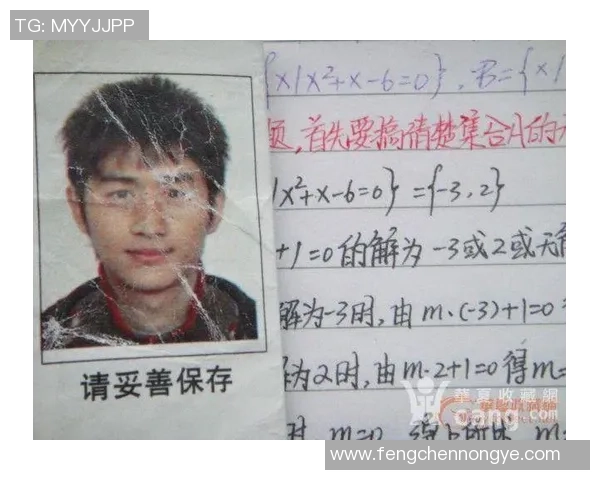 TG: MYYJJPP
{x|x²+x-6=0}, B={x|
首先要搞清楚集合A的
x²+x-6=0} = {-3, 2}
+1=0的解为 -3或2或无解
解为-3时, 由 m·(-3)+1=0
为2时, 由 m·2+1=0 得 m=
请妥善保存
华夏收藏網
时, m=0
www.fengchennongye.com